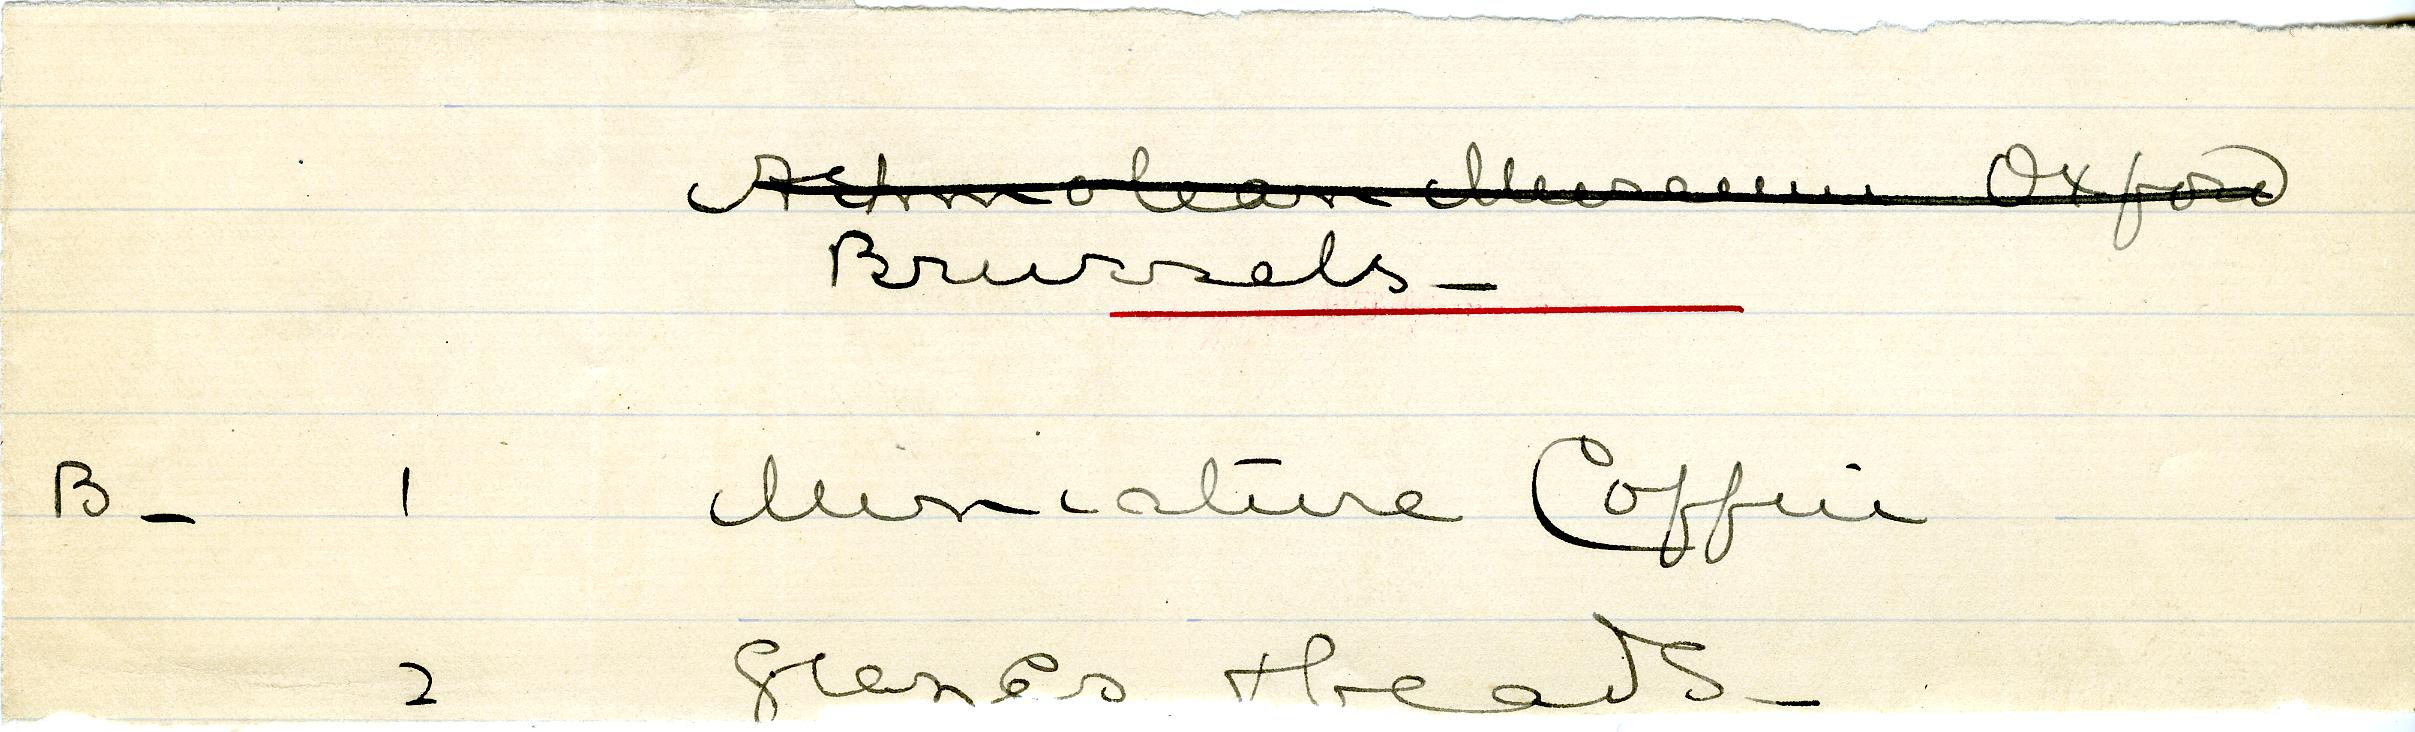 Ashmolean Museum Oxford
Brussels -
B - 1 Miniature Coffin
2 Heads -